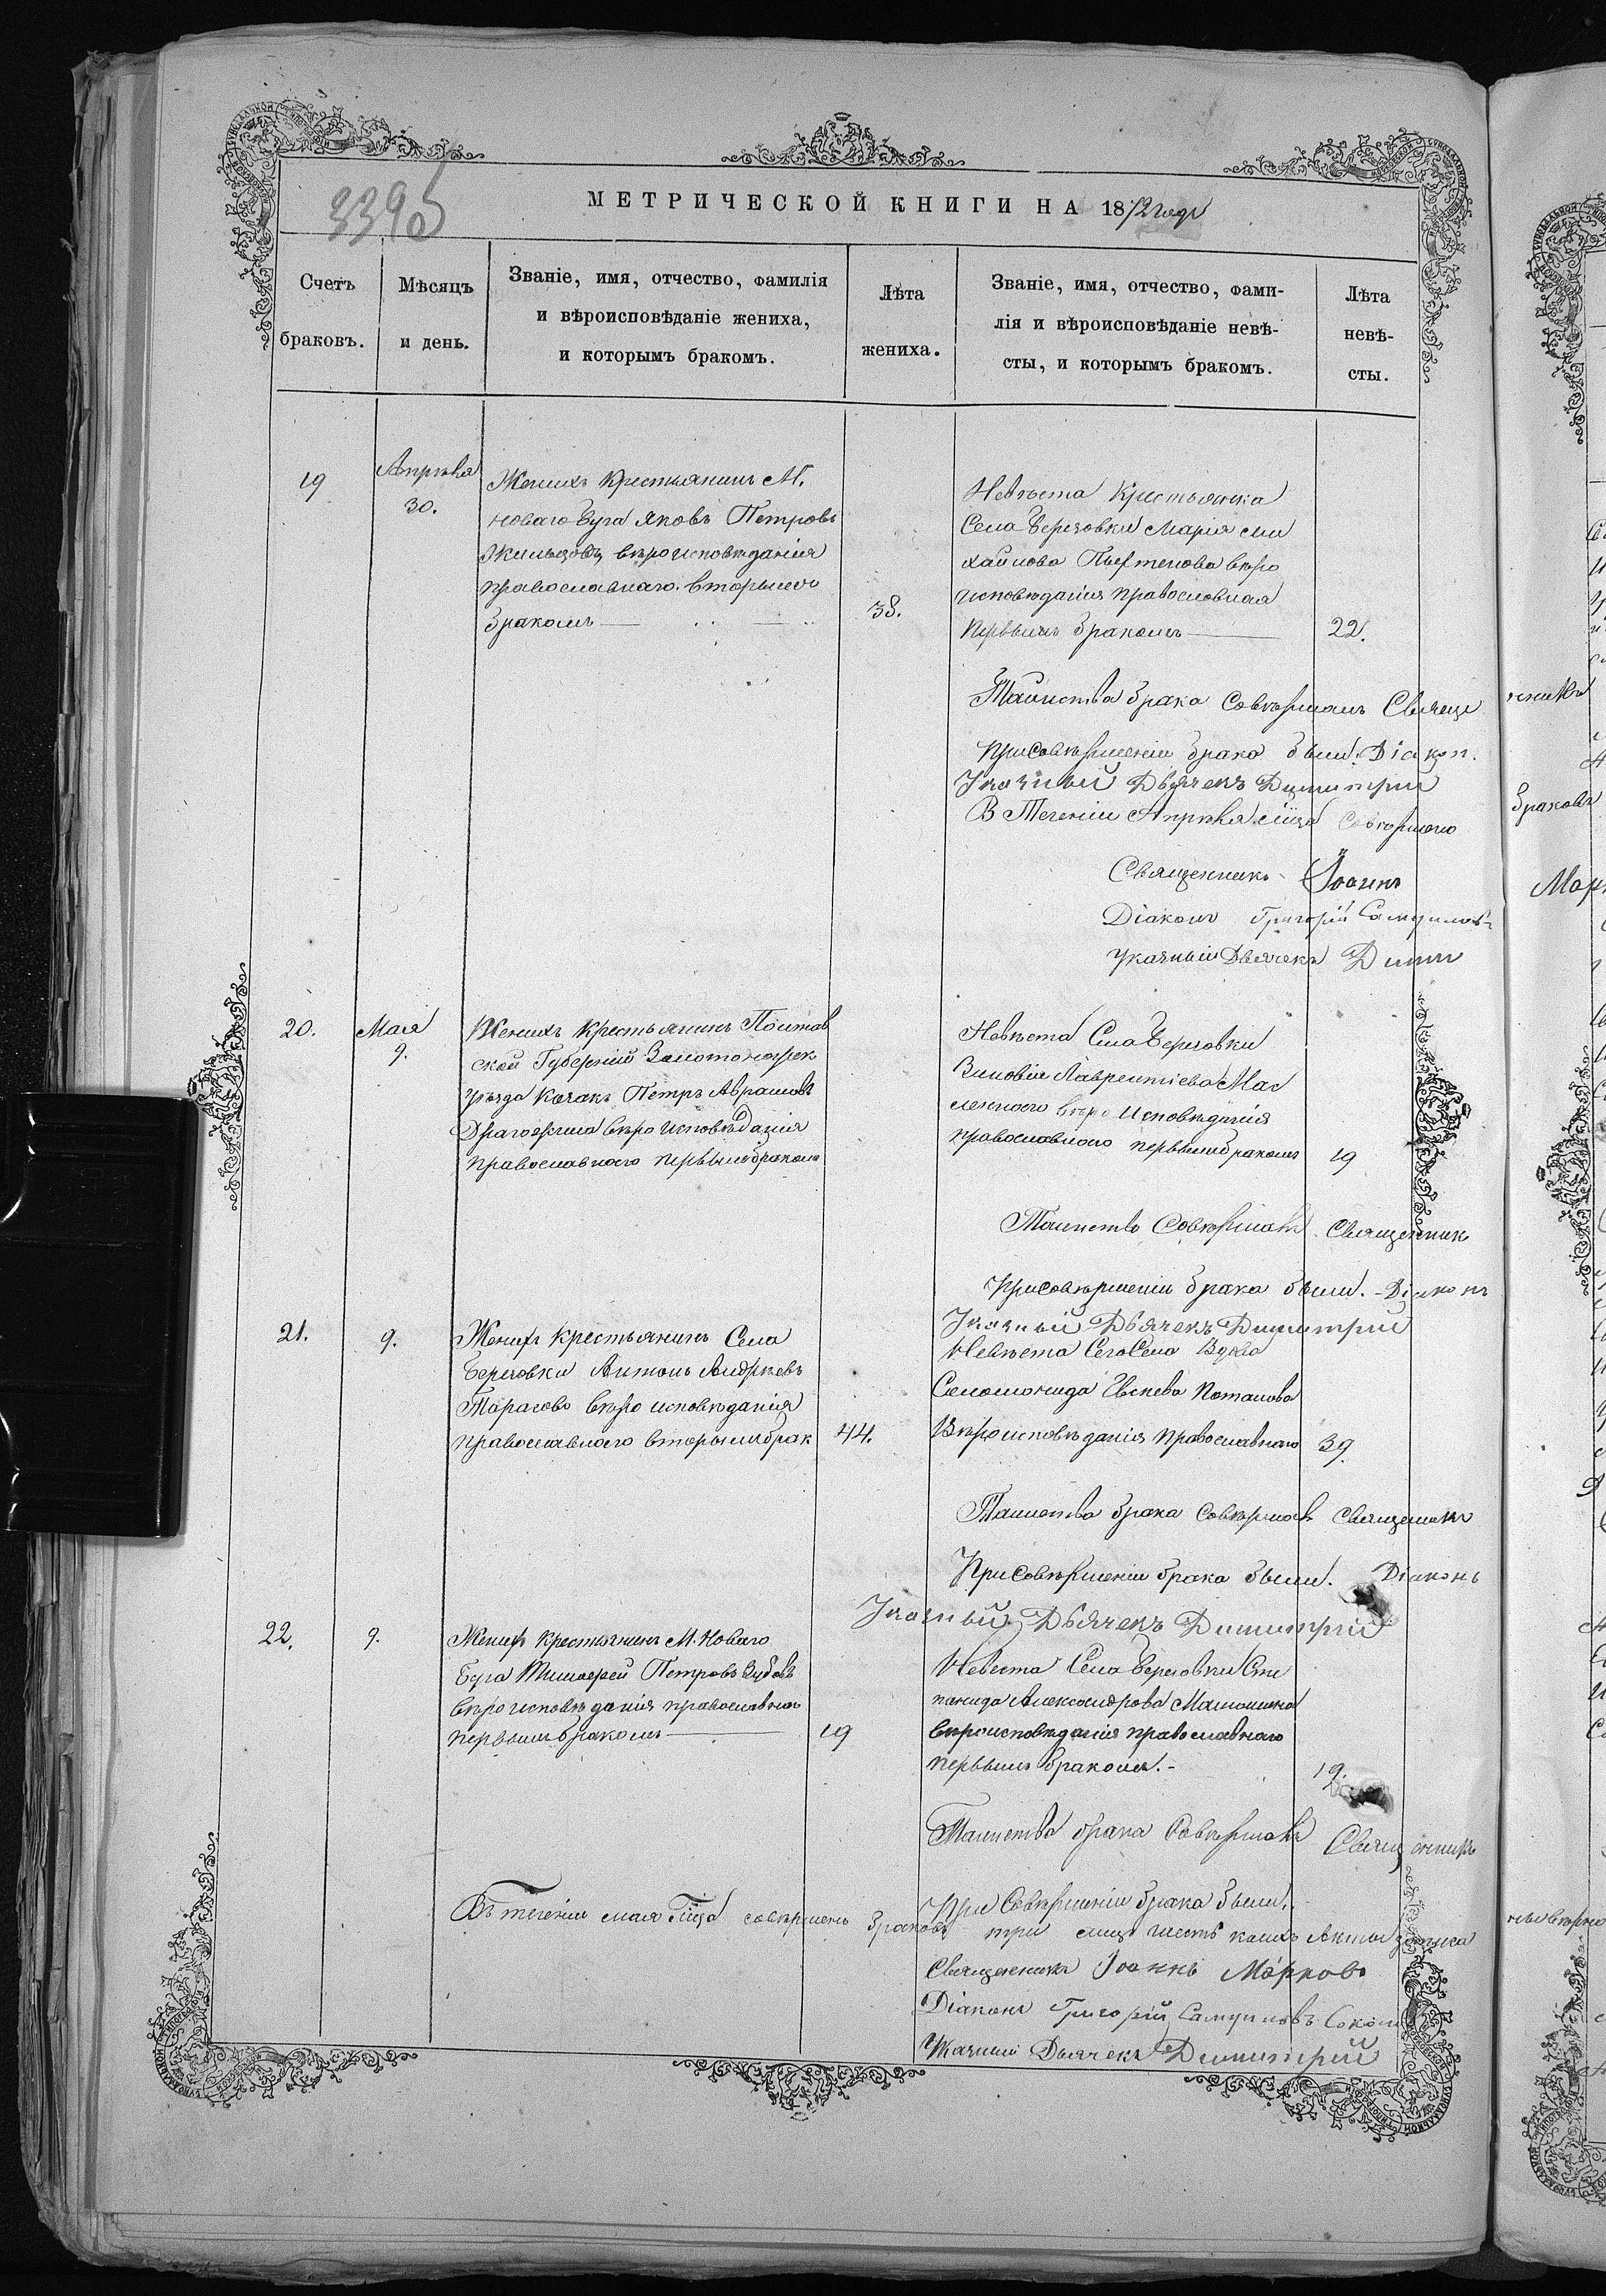 339об
МЕТРИЧЕСКОЙ КНИГИ НА 1872 годъ
Счетъ браковъ.
Мѣсяцъ и день.
Званіе, имя, отчество, фамилія
и вѣроисповѣданіе жениха,
и которымъ бракомъ.
Лѣта жениха.
Званіе, имя, отчество, фами-
лія и вѣроисповѣданіе невѣ-
сты, и которымъ бракомъ.
Лѣта невѣ-
сты.
19
Апрѣля
30.
Женихъ Крестьянинъ М.
новаго Буга Яковъ Петровъ
вѣроисповѣданія
православнаго. вторымъ
бракомъ
38.
Невѣста Крестьянка
Села Березовки Марія Ми
хайлова вѣро
исповѣданія православная
первымъ бракомъ
22.
Таинства брака Совѣршалъ Свяще
присовѣршеніи брака были. Діакон.
Указный Дьячекъ Димитрій
В Теченіи Апрѣля Совѣршено
Священникъ Іоаннъ
Діаконъ Григорій Самуиловъ
Указный Дьячекъ Дими
20.
Мая
9.
Женихъ Крестьянинъ Полтав
ской Губерніи Золотоношск
уѣзда Козакъ Петръ Аврамовъ
вѣроисповѣданія
православнаго первымъ бракомъ
Невѣста Села Березовки
Зиновія Лаврентіева Мас
вѣроисповѣданія
православнаго первымъ бракомъ
19
Таинство Совѣршалъ Священникъ
Присовѣршеніи брака были. - Діаконъ
Указный Дьячекъ Димитрій
21.
9.
Женихъ Крестьянинъ Села
Березовки Антонъ Андрѣевъ
вѣроисповѣданія
православнаго вторымъ брак
44.
Невѣста Сего Села Вдова
Соломонида Потапова
Вѣроисповѣданія православнаго
39.
Таинства брака совѣршалъ священникъ
При совѣршеніи брака были. Діаконъ
Указный Дьячекъ Димитрій
22.
9.
Женихъ Крестьянинъ М. Новаго
Буга Тимофей Петровъ Зубовъ
вѣроисповѣданія православнаго
первымъ бракомъ
19
Невѣста Села Березовки Сте
панида Александрова
вѣроисповѣданія православнаго
первымъ бракомъ. -
19.
Таинства брака Совѣршалъ Священникъ
При Совѣршеніи брака были.
Въ теченіи мая совѣршено браковъ три лицъ шесть актъ
Священникъ Іоаннъ Марковъ
Діаконъ Григорій Самуиловъ
Указный Дьячекъ Димитрій